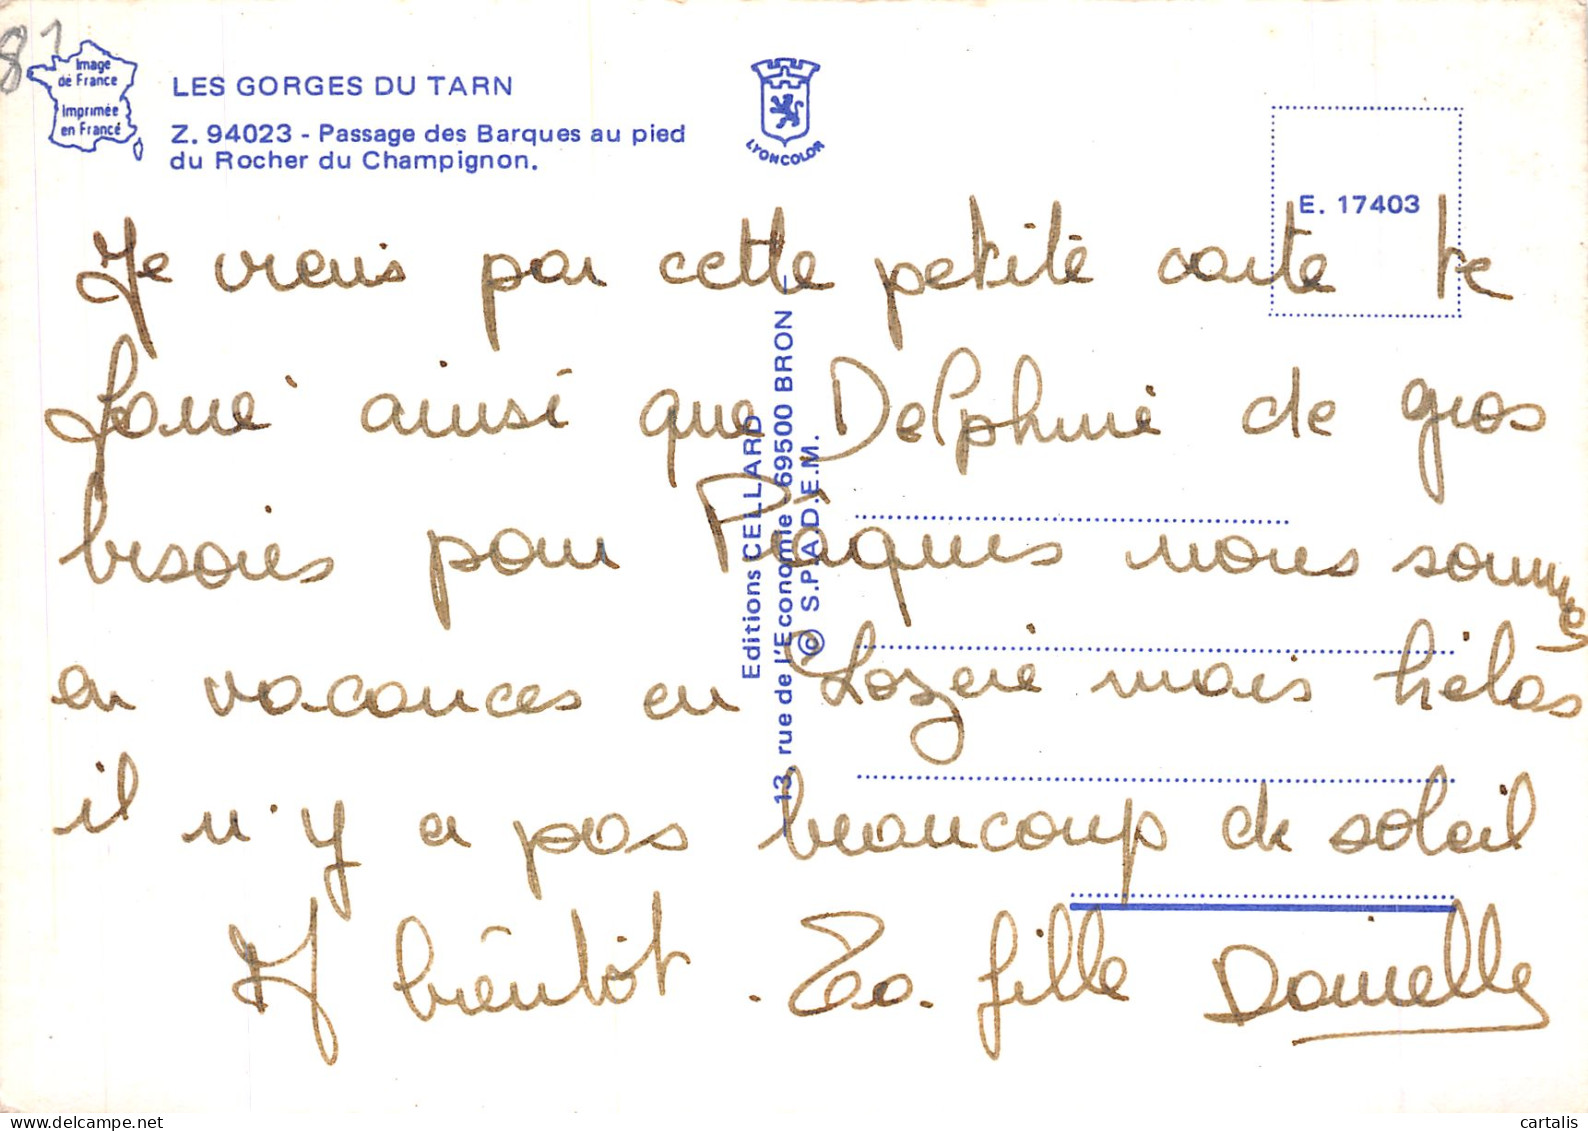 81
Image
de France
Imprimée
en France
LES GORGES DU TARN
Z. 94023 - Passage des Barques au pied
du Rocher du Champignon.
LYONCOLOR
E. 17403
Editions CELLARD
13, rue de l'Economie - 69500 BRON
© S.P.A.D.E.M.
Je viens par cette petite carte te
ainsi que Delphine de gros
bisoies pour Pâques nous sommes
en vacances en Lozere mais hélas
il n'y a pas beaucoup de soleil
A bientôt. Ta fille Danielle
cartalis